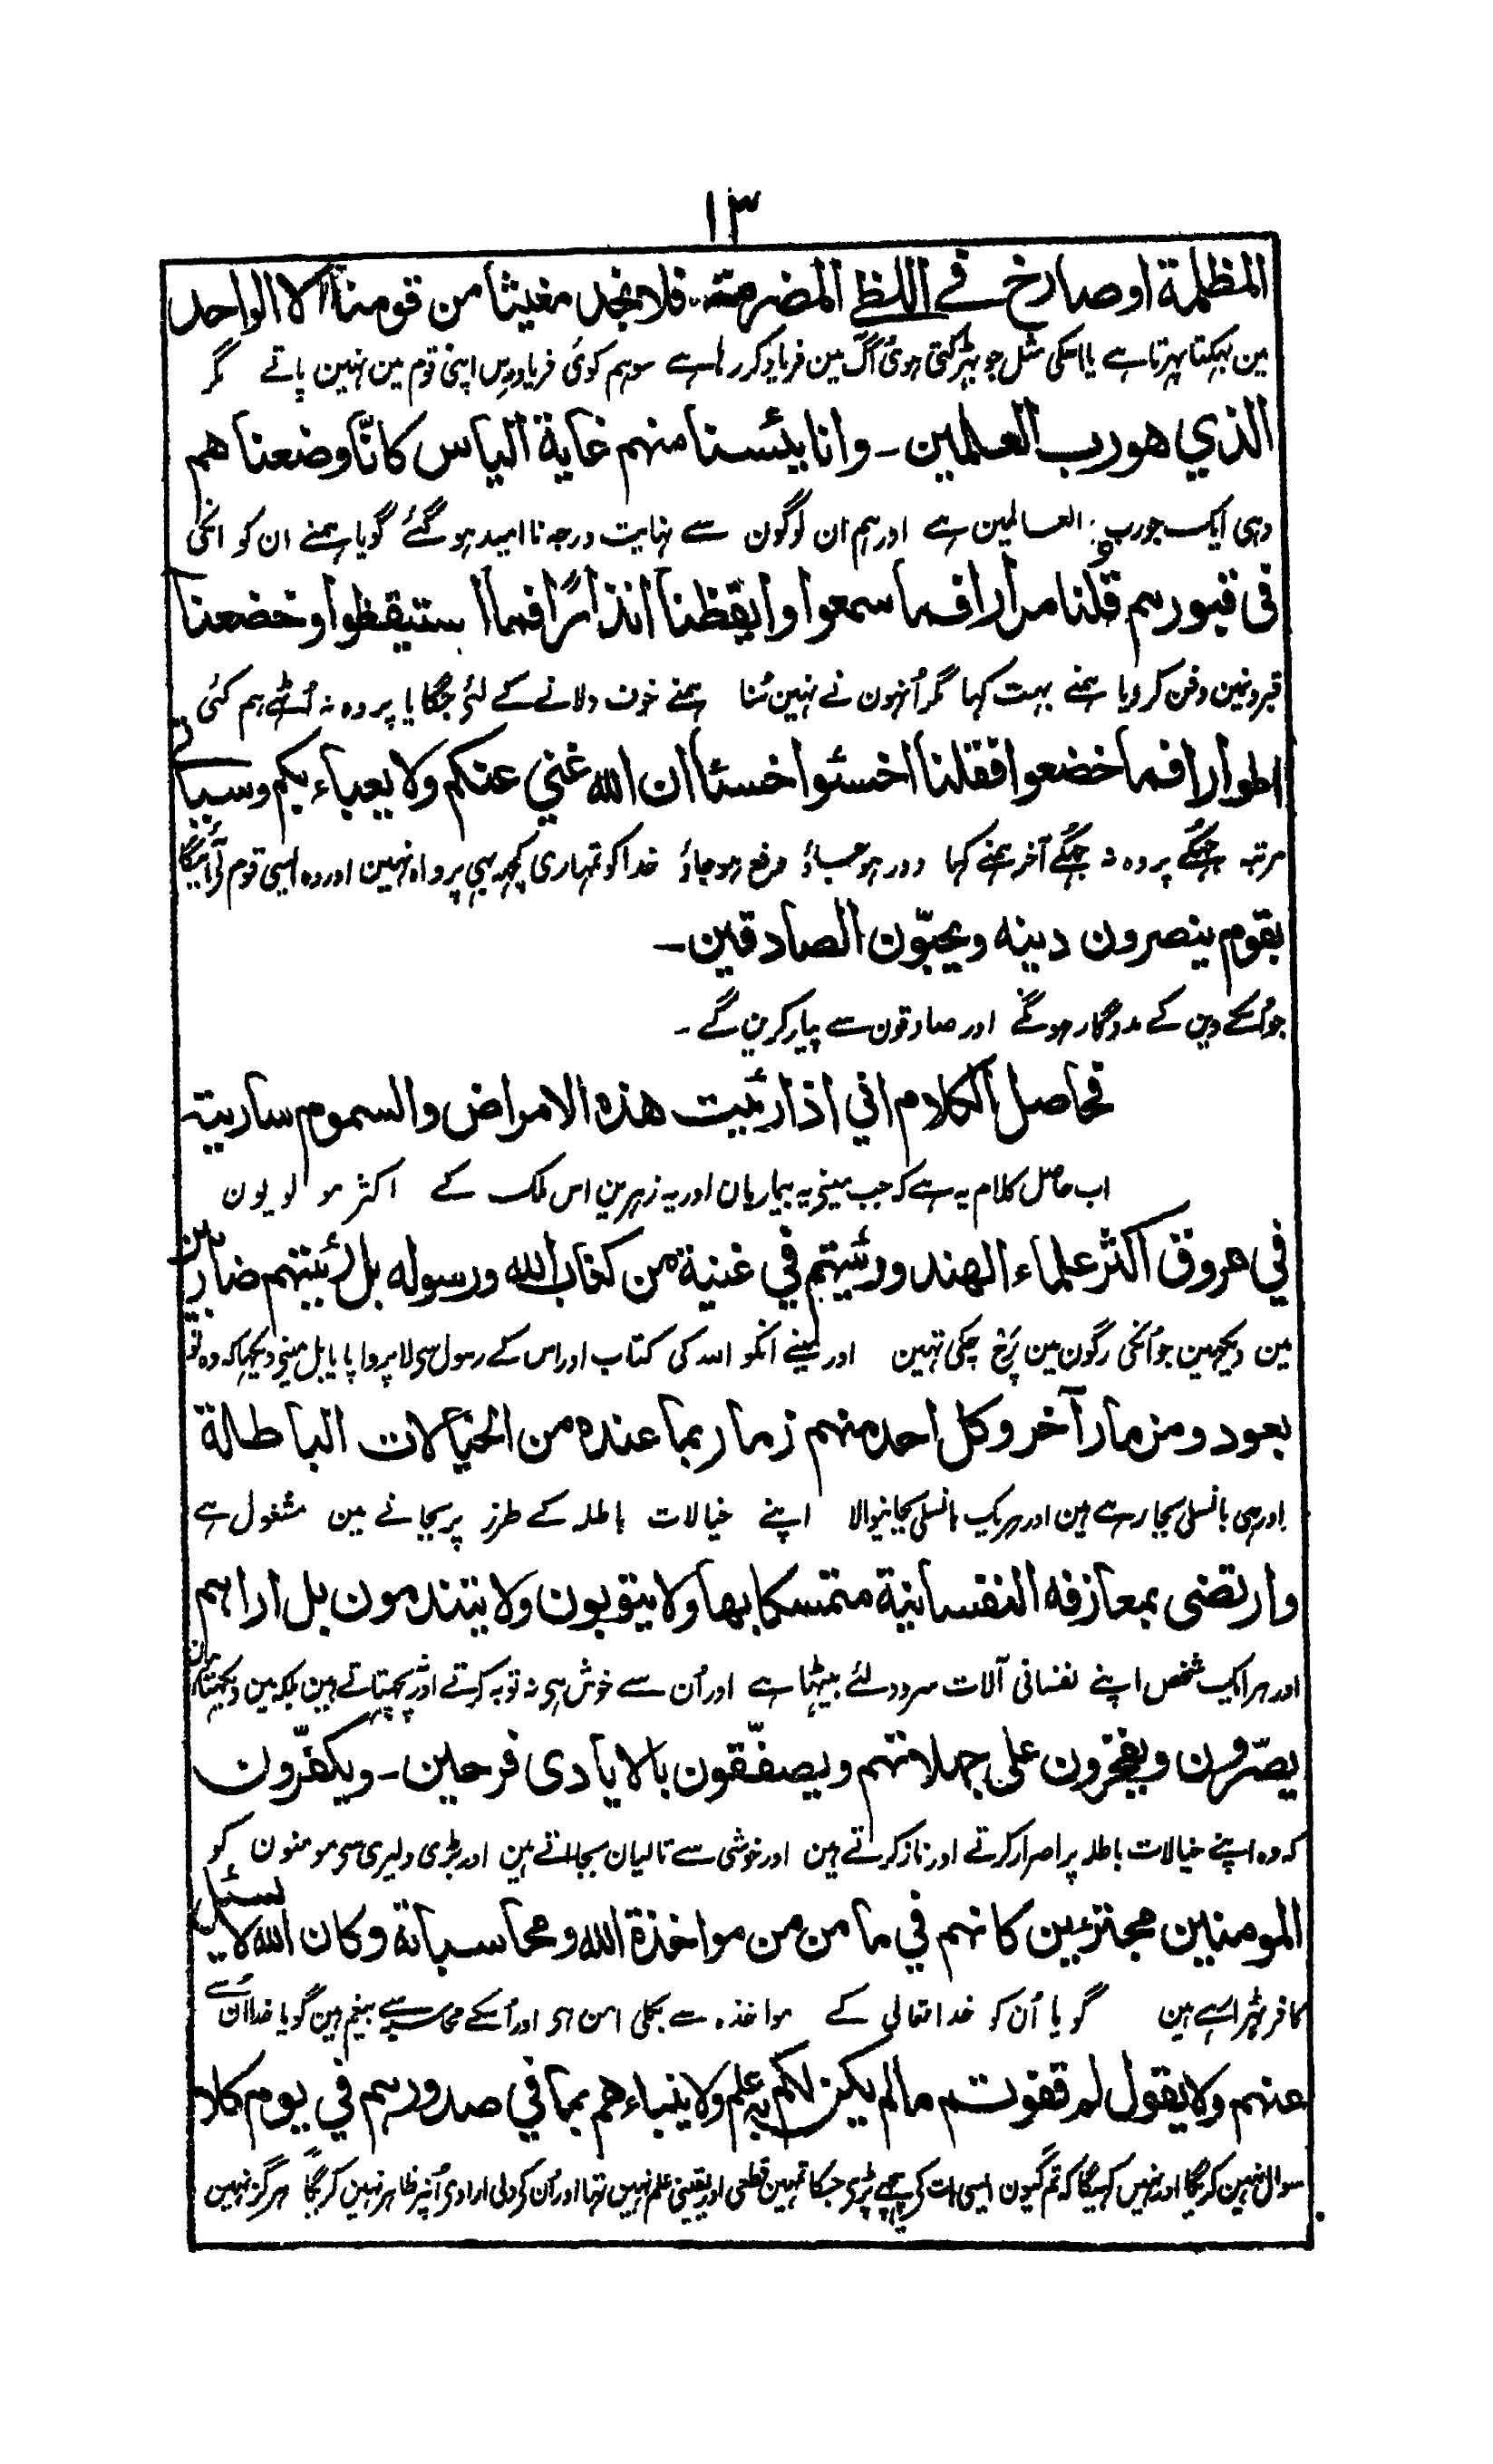 ١٣
المظلمة او صارخ في اللظى المضرمة. فلا نجد مغيثا من قومنا الا الواحد
مین بہکتا پہرتا ہے یا اسکی مثل جو بھڑکتی ہوئی آگ مین فریاد کر رہا ہے سو ہم کوئی فریادرس اپنی قوم مین نہین پاتے مگر
الذي هو رب العلمين ـ وانا يئسنا منهم غاية الياس كانّا وضعنا هم
وہی ایک جو رب العالمین ہے اور ہم ان لوگون سے نہایت درجہ نا امید ہو گئے گویا ہمنے ان کو انکی
فى قبورهم قلنا مرارا فما سمعوا وايقظنا انذارًا فما استيقظوا وخضعنا
قبرونمین دفن کر دیا ہمنے بہت کہا مگر اُنہون نے نہین سُنا ہمنے خوف دلانے کے لئے جگایا پر وہ نہ اُٹھے ہم کئی
اطوارا فما خضعوا فقلنا اخسئوا خسئا ان الله غني عنكم ولا يعباء بكم وسياتي
مرتبہ جھکے پر وہ نہ جھکے آخر ہمنے کہا دور ہو جاؤ دفع ہو جاؤ خدا کو تمہاری کچھ بھی پرواہ نہین اور وہ ایسی قوم لائیگا
بقوم ينصرون دينه ويحبّون الصادقين ـ
جو اُسکے دین کے مددگار ہونگے اور صادقون سے پیار کرین گے ۔
فحاصل الكلام اني اذا رئيت هذه الامراض والسموم سارية
اب حاصل کلام یہ ہے کہ جب مینے یہ بیماریان اور یہ زہرین اس ملک کے اکثر مولویون
في عروق اكثر علماء الهند ورئيتهم في غنية من كتاب الله ورسوله بل رئيتهم ضاربين
مین دیکھین جو اُنکی رگون مین رَچ چکی تہین اور مینے انکو اللہ کی کتاب اور اس کے رسول سے لاپروا پایا بل مینے دیکھا کہ وہ تو
بعود ومزمار آخر وكل احد منهم زمار بما عنده من الخيالات الباطلة
اور ہی بانسلی بجا رہے ہین اور ہر یک بانسلی بجانیوالا اپنے خیالات باطلہ کے طرز پر بجانے مین مشغول ہے
وارتضى بمعازفه النفسانية متمسكا بها ولا يتوبون ولا يتندمون بل اراهم
اور ہر ایک شخص اپنے نفسانی آلات سرود لئے بیٹھا ہے اور اُن سے خوش ہی نہ توبہ کرتے اور نہ پچھتاتے ہین بلکہ مین دیکھتا ہون
يصّرون ويفخرون على جهلاتهم ويصفّقون بالايادى فرحين ـ ويكفّرون
کہ وہ اپنے خیالات باطلہ پر اصرار کرتے اور ناز کرتے ہین اور خوشی سے تالیان بجاتے ہین اور بڑی دلیری سے مومنون کو
المومنين مجترءين كانهم في مامن من مواخذة الله ومحاسباته وكان الله لا يسئل
کافر ٹھہراتے ہین گویا اُن کو خدا تعالی کے مواخذہ سے بکلی امن ہی اور اُسکے محاسبہ سے بیغم ہین گویا خدا اُن سے
عنهم ولا يقول لم قفوتم مالم يكن لكم به علم ولا ينباءهم بما في صدورهم في يوم كلا
سوال نہین کریگا اور نہین کہیگا کہ تم کیون ایسی بات کے پیچھے پڑی جسکا تمہین قطعی اور یقینی علم نہین تہا اور اُن کی دلی ارادی اُنپر ظاہر نہین کریگا ہرگز نہین